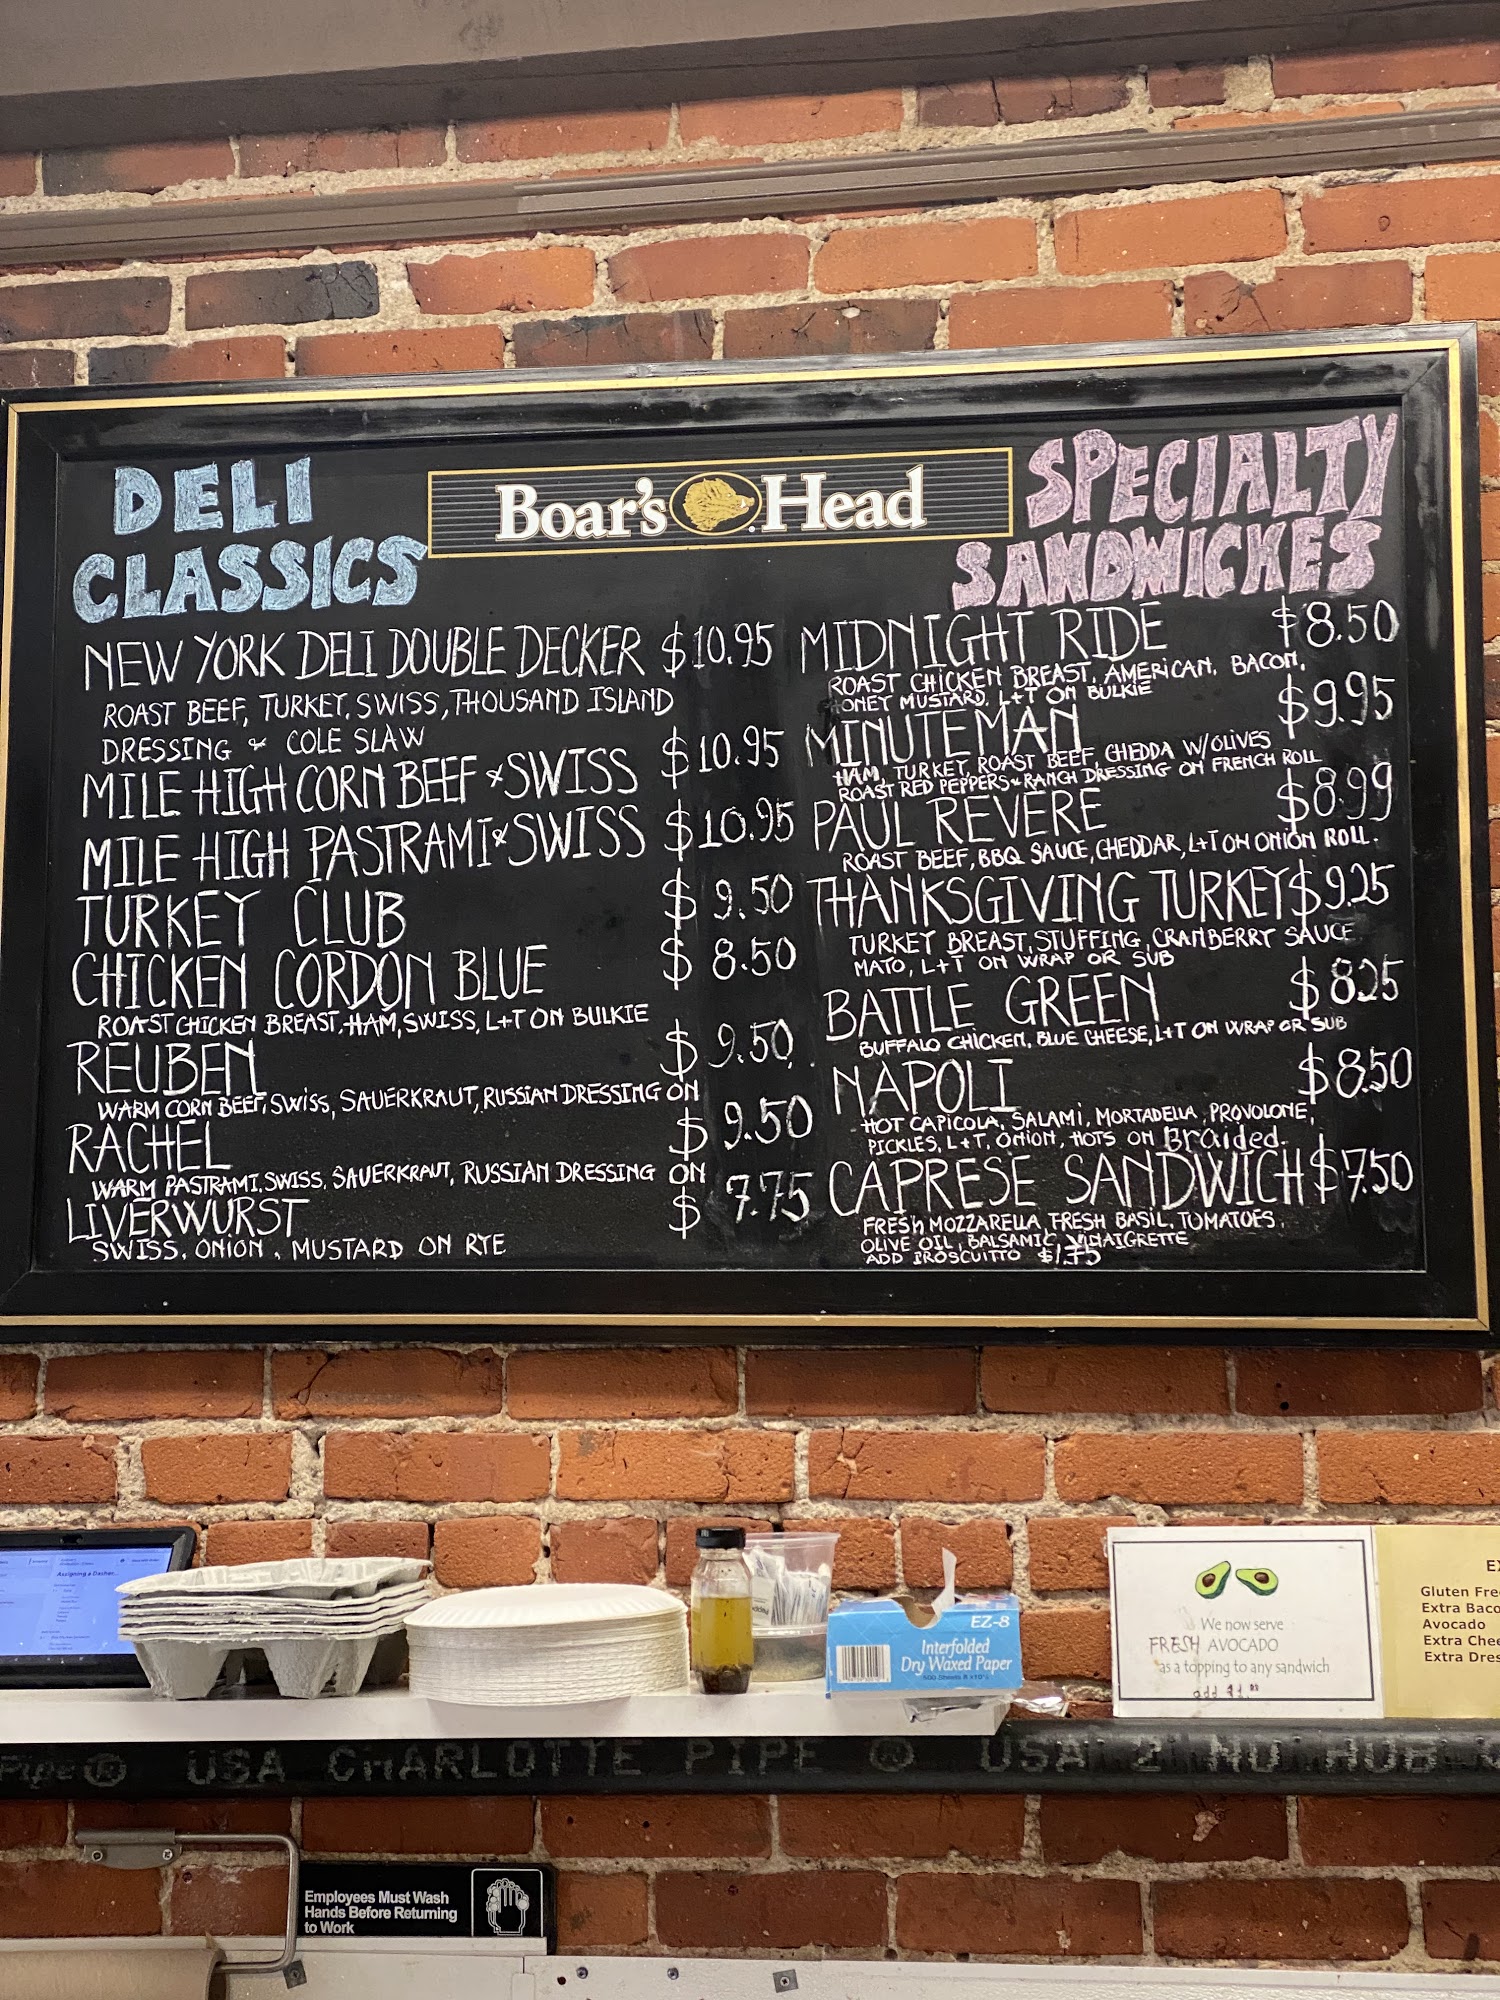 DELI
CLASSICS
Boar's Head
SPECIALTY
SANDWICHES
NEW YORK DELI DOUBLE DECKER $10.95
ROAST BEEF, TURKEY, SWISS, THOUSAND ISLAND
DRESSING & COLE SLAW
MILE HIGH CORN BEEF & SWISS $10.95
MILE HIGH PASTRAMI & SWISS $10.95
TURKEY CLUB $9.50
CHICKEN CORDON BLUE $8.50
ROAST CHICKEN BREAST, HAM, SWISS, L+T ON BULKIE
REUBEN $9.50
WARM CORN BEEF, SWISS, SAUERKRAUT, RUSSIAN DRESSING ON
RACHEL $9.50
WARM PASTRAMI, SWISS, SAUERKRAUT, RUSSIAN DRESSING ON
LIVERWURST $7.75
SWISS, ONION, MUSTARD ON RYE
MIDNIGHT RIDE $8.50
ROAST CHICKEN BREAST, AMERICAN, BACON,
HONEY MUSTARD, L+T ON BULKIE
MINUTEMAN $9.95
HAM, TURKEY, ROAST BEEF, CHEDDA W/OLIVES
ROAST RED PEPPERS & RANCH DRESSING ON FRENCH ROLL
PAUL REVERE $8.99
ROAST BEEF, BBQ SAUCE, CHEDDAR, L+T ON ONION ROLL.
THANKSGIVING TURKEY $9.25
TURKEY BREAST, STUFFING, CRANBERRY SAUCE
MAYO, L+T ON WRAP OR SUB
BATTLE GREEN $8.25
BUFFALO CHICKEN, BLUE CHEESE, L+T ON WRAP OR SUB
NAPOLI $8.50
HOT CAPICOLA, SALAMI, MORTADELLA, PROVOLONE,
PICKLES, L+T, ONION, HOTS ON Braided.
CAPRESE SANDWICH $7.50
FRESH MOZZARELLA, FRESH BASIL, TOMATOES,
OLIVE OIL, BALSAMIC VINAIGRETTE
ADD PROSCUITTO $1.75
Assigning a Dasher...
EZ-8
Interfolded
Dry Waxed Paper
We now serve
FRESH AVOCADO
as a topping to any sandwich
add $1.00
Gluten Fre
Extra Baco
Avocado
Extra Chee
Extra Dres
Pipe ® USA CHARLOTTE PIPE ® USA 2 NO HUB
Employees Must Wash
Hands Before Returning
to Work